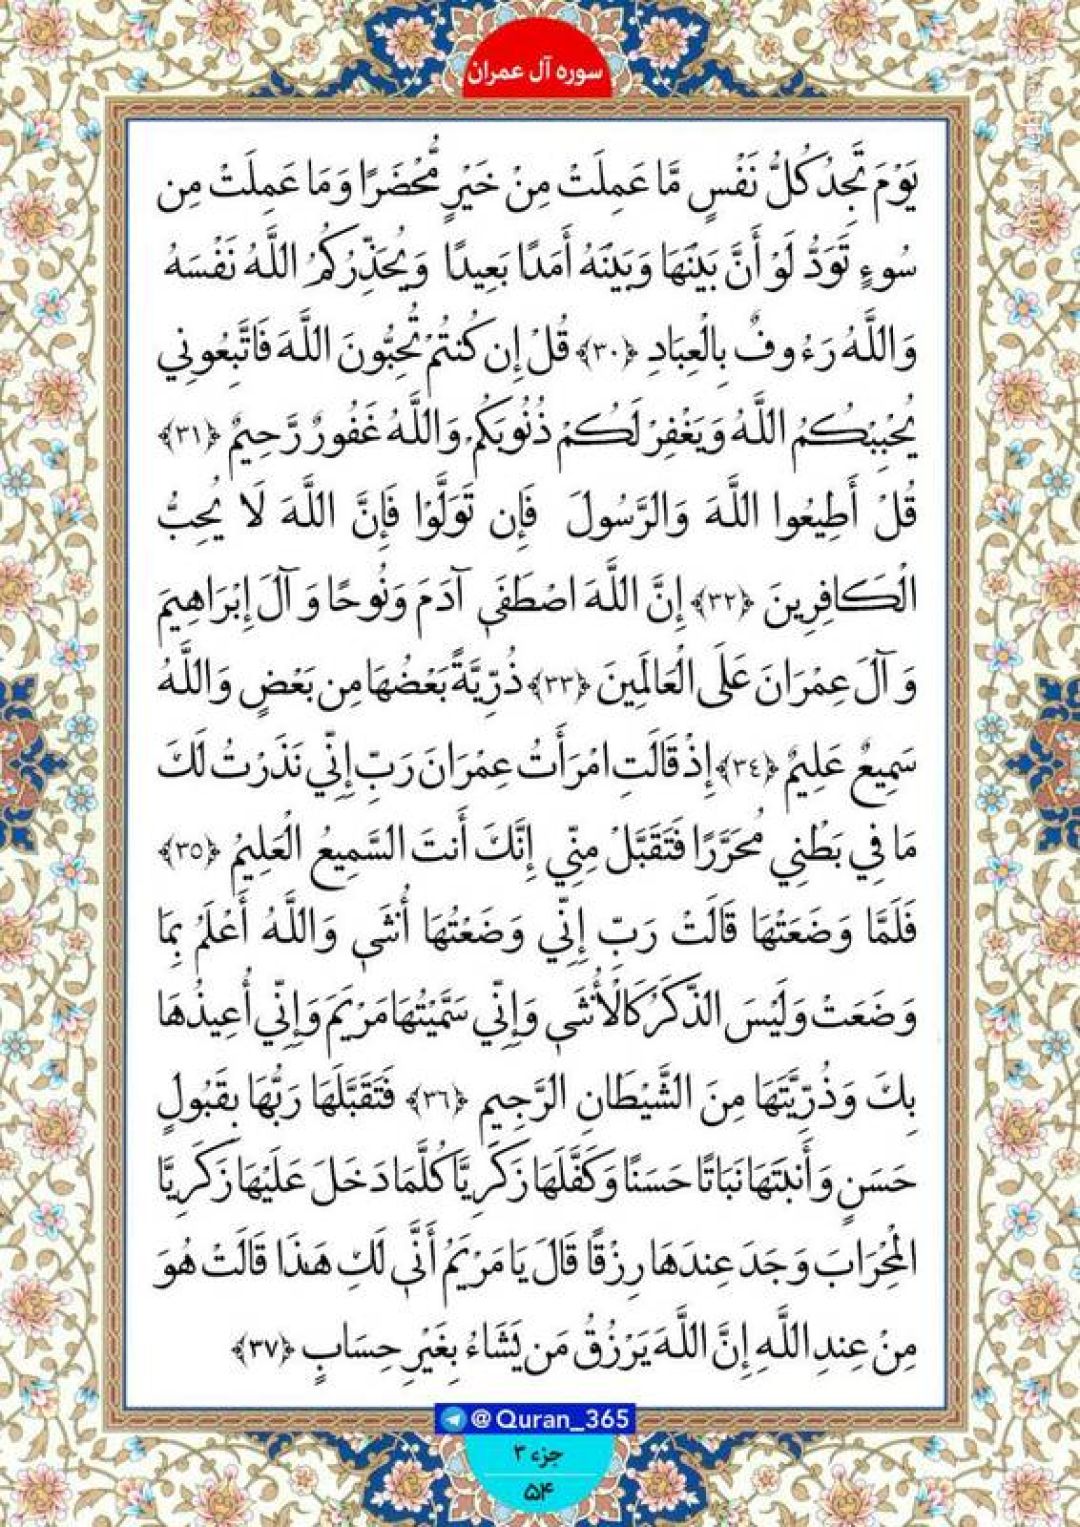 سوره آل عمران
يَوْمَ تَجِدُ كُلُّ نَفْسٍ مَّا عَمِلَتْ مِنْ خَيْرٍ مُّحْضَرًا وَمَا عَمِلَتْ مِن
سُوءٍ تَوَدُّ لَوْ أَنَّ بَيْنَهَا وَبَيْنَهُ أَمَدًا بَعِيدًا وَيُحَذِّرُكُمُ اللَّهُ نَفْسَهُ
وَاللَّهُ رَءُوفٌ بِالْعِبَادِ ﴿٣٠﴾ قُلْ إِن كُنتُمْ تُحِبُّونَ اللَّهَ فَاتَّبِعُونِي
يُحْبِبْكُمُ اللَّهُ وَيَغْفِرْ لَكُمْ ذُنُوبَكُمْ وَاللَّهُ غَفُورٌ رَّحِيمٌ ﴿٣١﴾
قُلْ أَطِيعُوا اللَّهَ وَالرَّسُولَ فَإِن تَوَلَّوْا فَإِنَّ اللَّهَ لَا يُحِبُّ
الْكَافِرِينَ ﴿٣٢﴾ إِنَّ اللَّهَ اصْطَفَى آدَمَ وَنُوحًا وَآلَ إِبْرَاهِيمَ
وَآلَ عِمْرَانَ عَلَى الْعَالَمِينَ ﴿٣٣﴾ ذُرِّيَّةً بَعْضُهَا مِن بَعْضٍ وَاللَّهُ
سَمِيعٌ عَلِيمٌ ﴿٣٤﴾ إِذْ قَالَتِ امْرَأَتُ عِمْرَانَ رَبِّ إِنِّي نَذَرْتُ لَكَ
مَا فِي بَطْنِي مُحَرَّرًا فَتَقَبَّلْ مِنِّي إِنَّكَ أَنتَ السَّمِيعُ الْعَلِيمُ ﴿٣٥﴾
فَلَمَّا وَضَعَتْهَا قَالَتْ رَبِّ إِنِّي وَضَعْتُهَا أُنثَى وَاللَّهُ أَعْلَمُ بِمَا
وَضَعَتْ وَلَيْسَ الذَّكَرُ كَالْأُنثَى وَإِنِّي سَمَّيْتُهَا مَرْيَمَ وَإِنِّي أُعِيذُهَا
بِكَ وَذُرِّيَّتَهَا مِنَ الشَّيْطَانِ الرَّجِيمِ ﴿٣٦﴾ فَتَقَبَّلَهَا رَبُّهَا بِقَبُولٍ
حَسَنٍ وَأَنبَتَهَا نَبَاتًا حَسَنًا وَكَفَّلَهَا زَكَرِيَّا كُلَّمَا دَخَلَ عَلَيْهَا زَكَرِيَّا
الْمِحْرَابَ وَجَدَ عِندَهَا رِزْقًا قَالَ يَا مَرْيَمُ أَنَّى لَكِ هَذَا قَالَتْ هُوَ
مِنْ عِندِ اللَّهِ إِنَّ اللَّهَ يَرْزُقُ مَن يَشَاءُ بِغَيْرِ حِسَابٍ ﴿٣٧﴾
@Quran_365
جزء ۳
۵۴